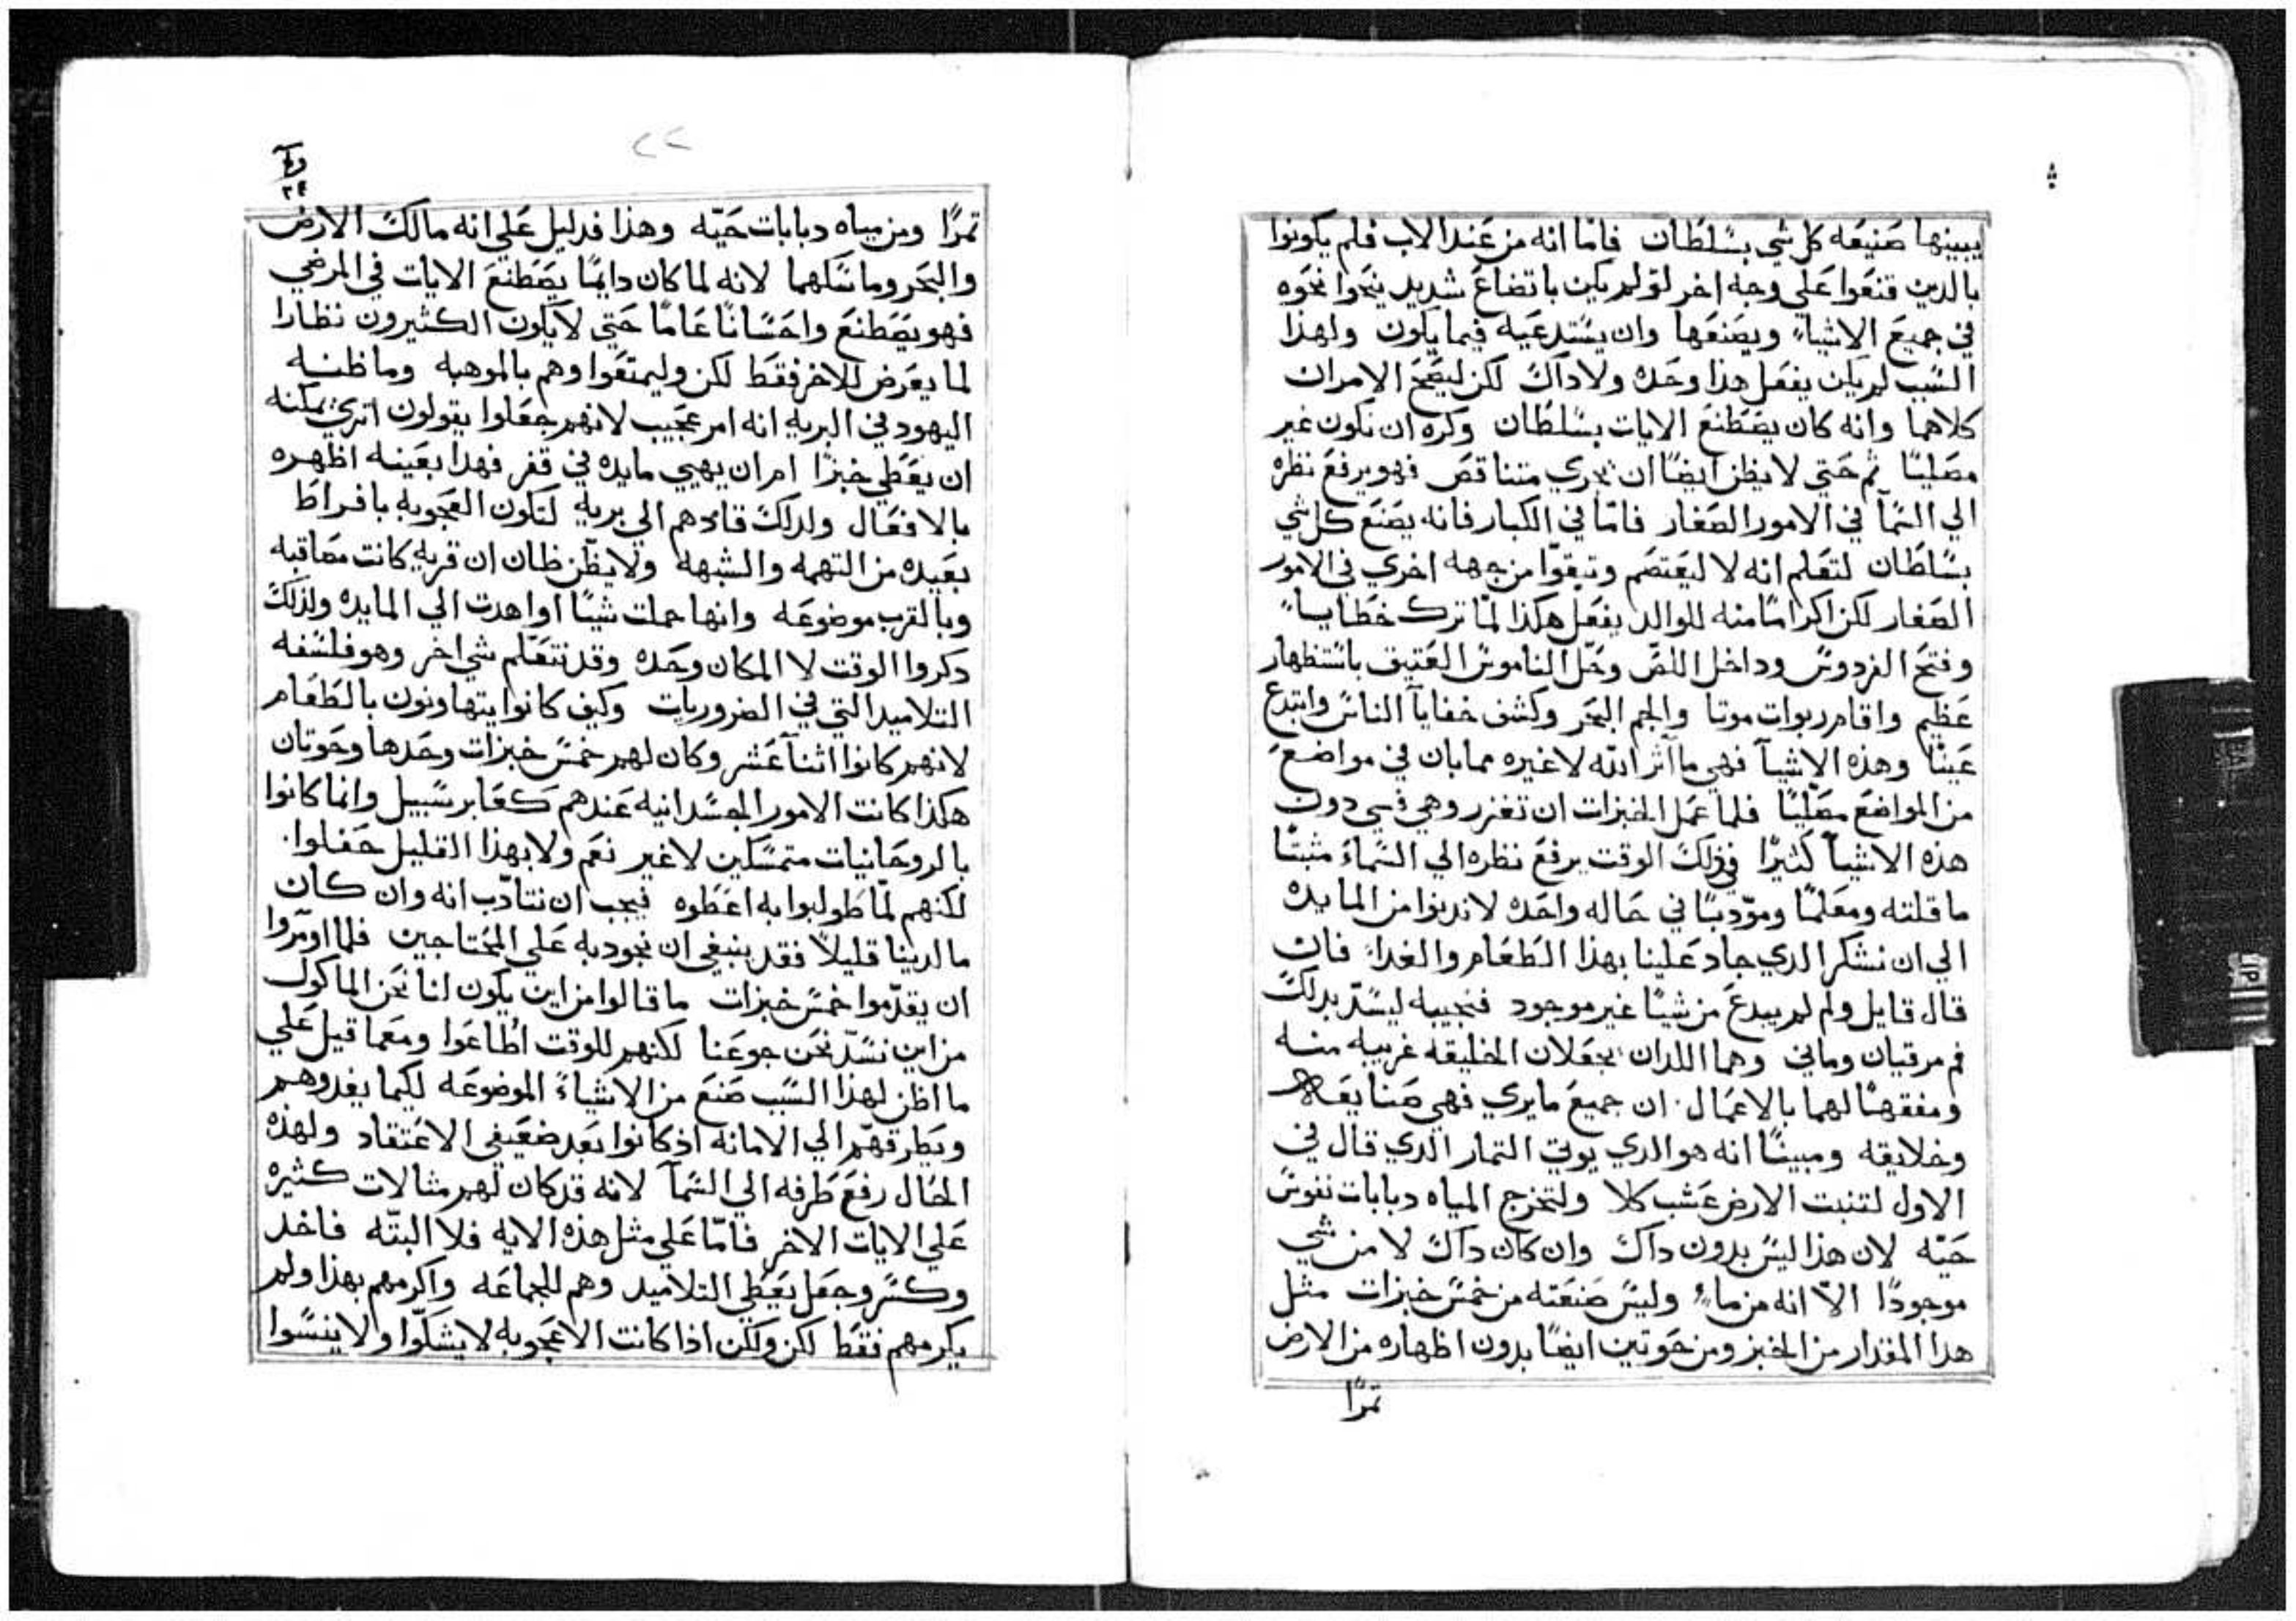 يبينها صنيعه كل شي بسلطان فامّا انه من عند الاب فلم يكونوا
بالدين قنعوا علي وجه اخر لو لم يكن باتضاع شديد ينحوا نحوه
في جميع الاشياء ويصنعها وان يستدعيه فيما يكون ولهذا
السبب لم يكن يفعل هذا وحده ولا داك لكن ليصح الامران
كلاهما وانه كان يصطنع الايات بسلطان وكره ان تكون غير
مصليًا ثم حتي لا يظن ايضًا ان تجري متناقص فهو يرفع نظره
الي السمآ في الامور الصغار فامّا في الكبار فانه يصنع كل شي
بسلطان لتعلم انه لا ليعتصم وتيقوّا من جهه اخري في الامور
الصغار لكن اكرامًا منه للوالد يفعل هكذا لمّا ترك خطايا
وفتح الفردوس وداخل اللصّ وحلّ الناموس العتيق باستظهار
عظيم واقام ربوات موتا والجم البحر وكشف خفايآ الناس وابتدع
عينًا وهذه الاشيآ فهي مآاثر الله لا غيره مما بان في مواضع
من المواضع مصليًا فلما عمل الخبزات ان تغزر وهي في دون
هذه الاشيآ كثيرًا في ذلك الوقت يرفع نظره الي السماء مثبتًا
ما قلته ومعلمًا وموّدبًا في حاله واحده لا ندنوا من المايده
الي ان نشكر الدي جاد علينا بهذا الطعام والغداء فان
قال قايل ولم لم يبدع من شيًا غير موجود فنجيبه ليسدّ بدلك
فم مرقيان وماني وهما اللدان يجعلان الخليقه غريبه منه
ومفقهًا لهما بالاعمال ان جميع ما يري فهي صنايعه
وخلايقه ومبينًا انه هو الدي يوتي الثمار الدي قال في
الاول لتنبت الارض عشب كلا ولتخرج المياه دبابات نفوس
حيّه لان هذا ليس بدون داك وان كان داك لا من شي
موجودًا الاّ انه من ماء وليس صنعته من خمس خبزات مثل
هدا المقدار من الخبز ومن حوتين ايضًا بدون اظهاره من الارض
تمرًا
٢٢
٢٤
تمرًا ومن مياه دبابات حيّه وهذا فدليل علي انه مالك الارض
والبحر وما شكلهما لانه لما كان دايمًا يصطنع الايات في المرضي
فهو يصطنع واحسانًا عامًا حتي لا يكون الكثيرون نظارا
لما يعرض للاخر فقط لكن وليمتعوا وهم بالموهبه وما ظنه
اليهود في البريه انه امر عجيب لانهم جعلوا يقولون اتري يمكنه
ان يعطي خبزًا ام ان يهيي مايده في قفر فهدا بعينه اظهره
بالافعال ولدلك قادهم الي بريه لتكون العجوبه بافراط
بعيده من التهمه والشبهه ولا يظن ظان ان قريه كانت مصاقبه
وبالقرب موضوعه وانها حملت شيًا او اهدت الي المايده ولذلك
دكروا الوقت لا المكان وحده وقد نتعلم شي اخر وهو فلسفه
التلاميد التي في الضروريات وكيف كانوا يتهاونون بالطعام
لانهم كانوا اثنآ عشر وكان لهم خمس خبزات وحدها وحوتان
هكذا كانت الامور الجسدانيه عندهم كعابر سبيل وانما كانوا
بالروحانيات متمسكين لا غير نعم ولا بهذا القليل حفلوا
لكنهم لمّا طولبوا به اعطوه فيجب ان نتادّب انه وان كان
ما لدينا قليلاً فقد ينبغي ان نجود به علي المحتاجين فلما اومروا
ان يقدّموا خمس خبزات ما قالوا من اين يكون لنا نحن الماكول
من اين نسدّ نحن جوعنا لكنهم للوقت اطاعوا ومعما قيل علي
ما اظن لهذا السبب صنع من الاشياء الموضوعه لكيما يغدوهم
ويطرقهم الي الامانه اذ كانوا بعد ضعيفي الاعتقاد ولهذه
الحال رفع طرفه الي السمآ لانه قد كان لهم مثالات كثيره
علي الايات الاخر فامّا علي مثل هذه الايه فلا البتّه فاخد
وكسر وجعل يعطي التلاميد وهم للجماعه واكرمهم بهذا ولم
يكرمهم فقط لكن ولكن اذا كانت الاعجوبه لا يشكّوا ولا ينسوا